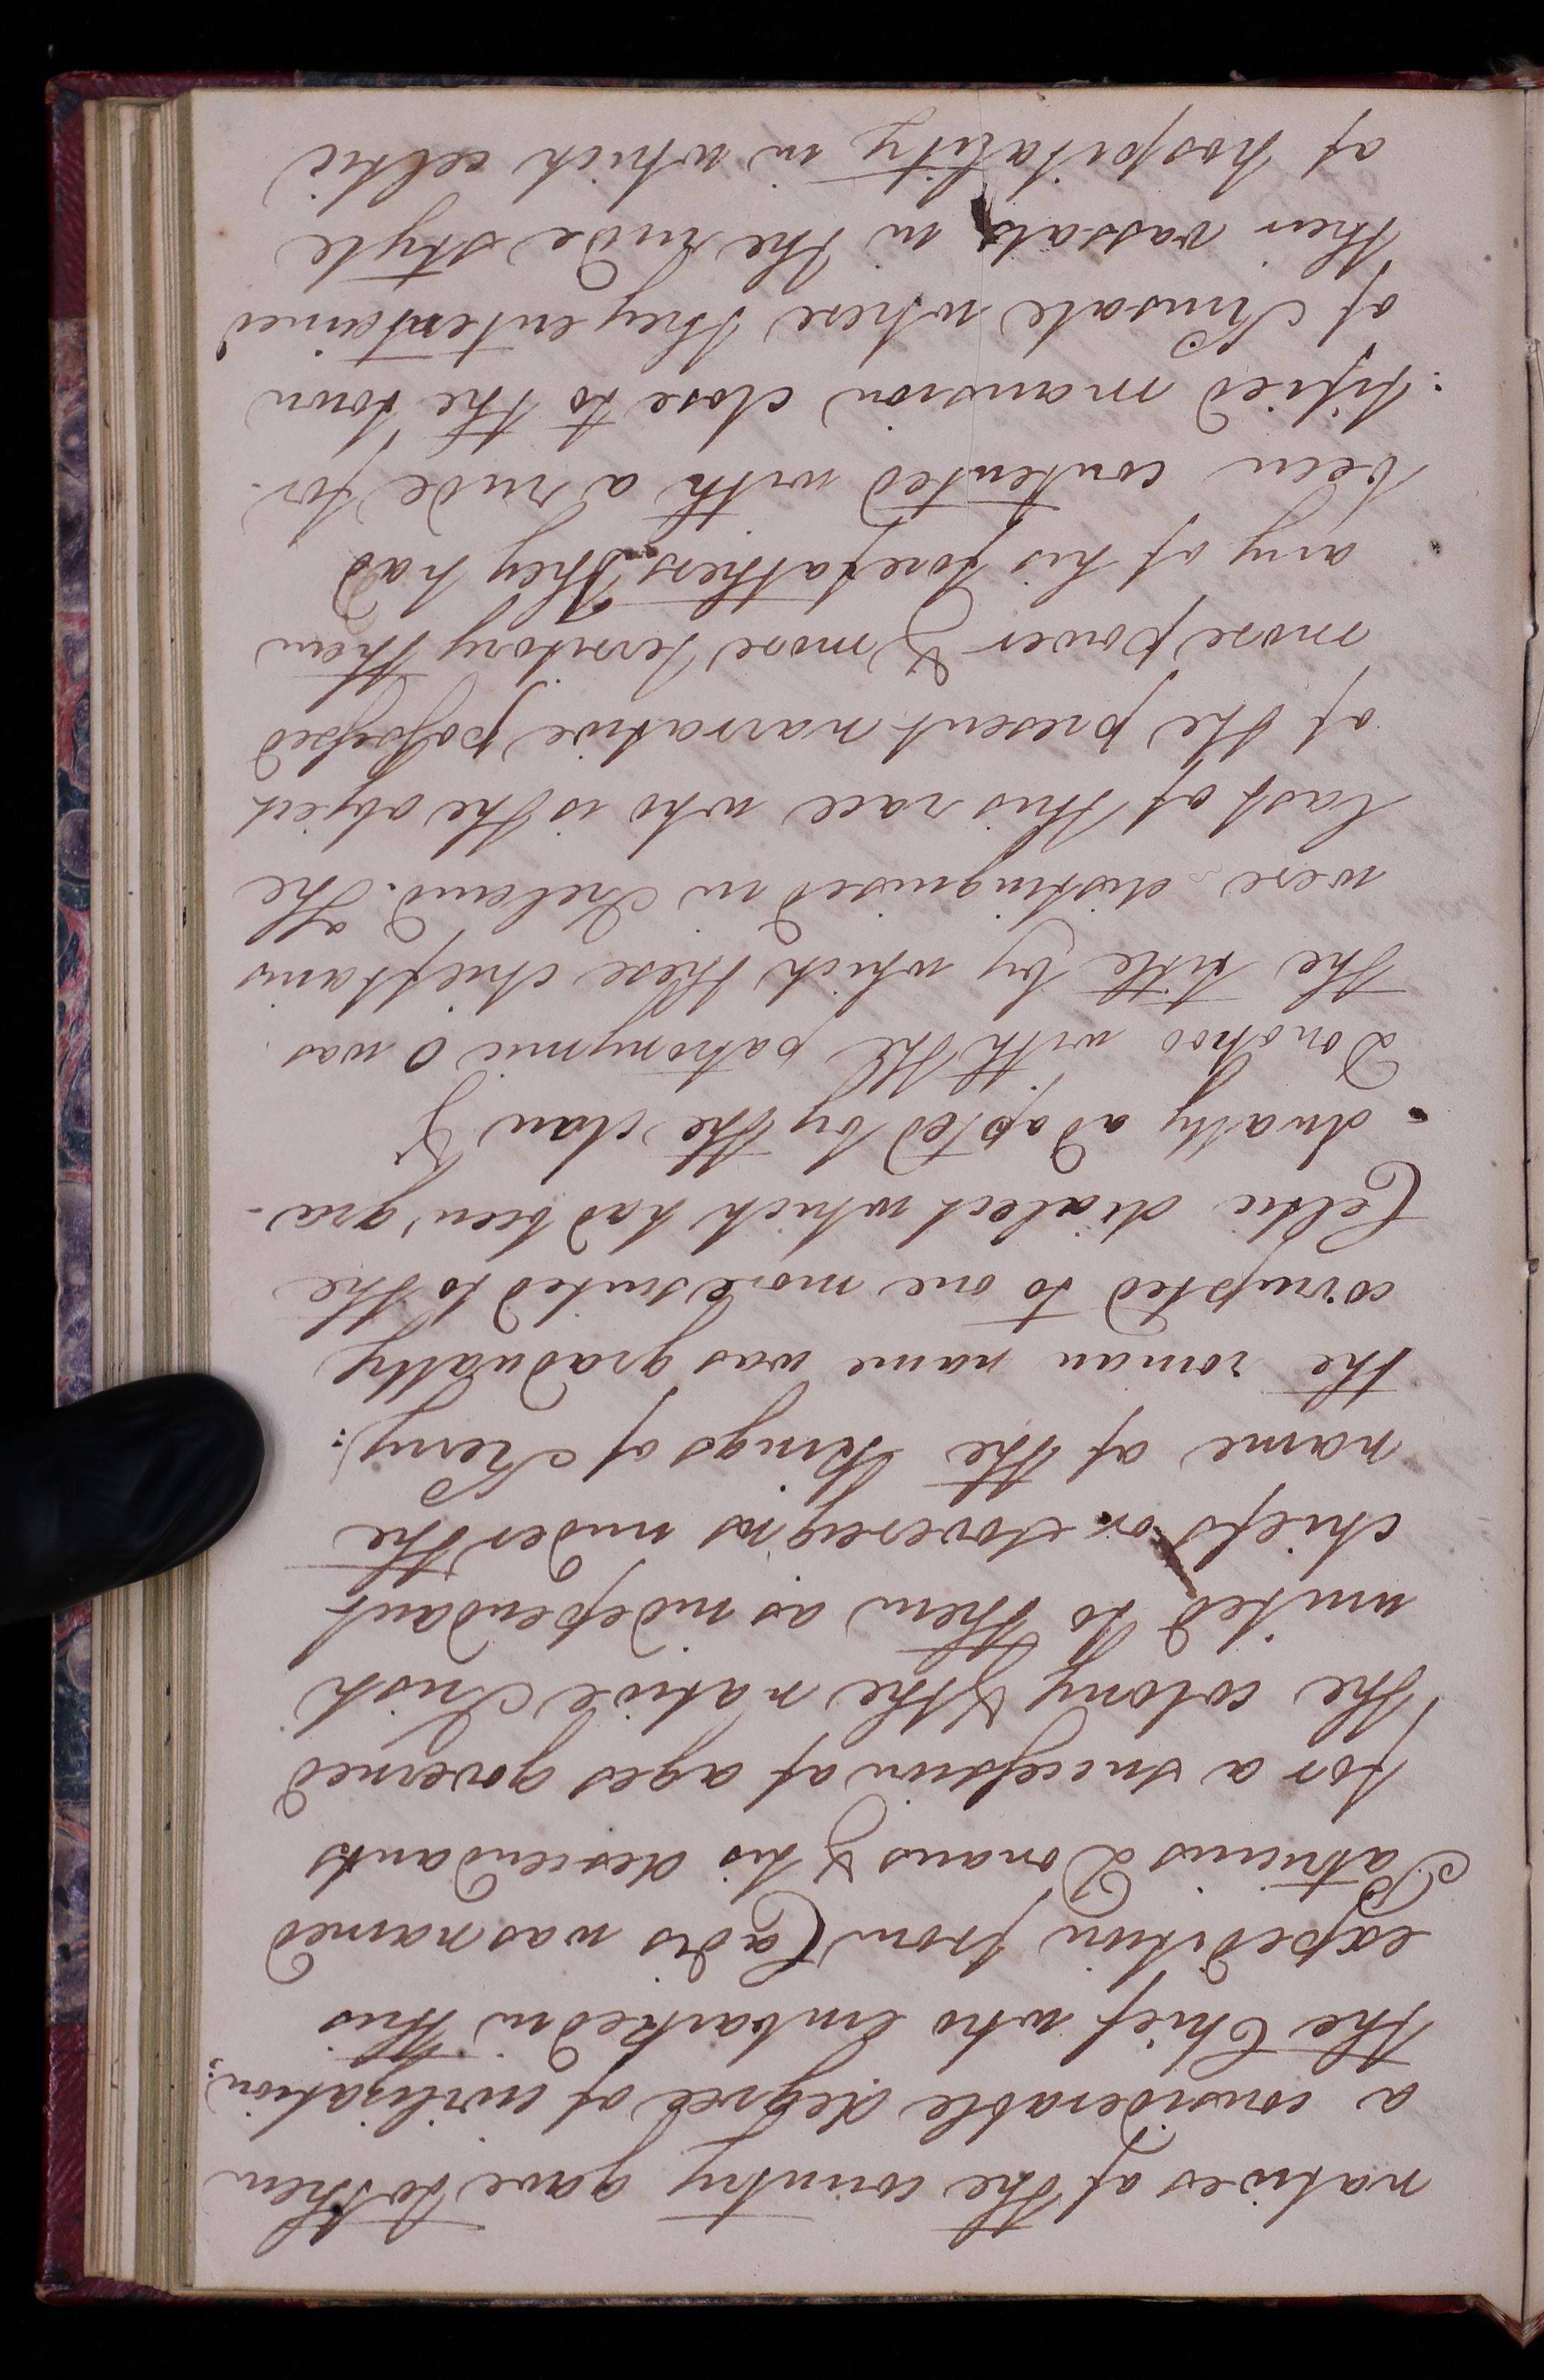 natives of the country gave to them
a considerable degree of civilization:
the Chief who embarked in this
expedition from Cadis was named
Patricius Donans & his descendants
for a succession of ages governed
the colony & the native Irish
united to them as independant
chiefs or sovereigns under the
name of the Kings of Kerry:
the roman name was gradually
corrupted to one more suited to the
Celtic dialect which had been gra-
-dually adopted by the clan &
Donohoo with the patronymic O was
the title by which these chieftains
were distinguised in Ireland. The
last of this race who is the object
of the present narrative possessed
more power & more territory than
any of his forefathers. They had
been contented with a rude for-
:tified mansion close to the town
of Kinsale where they entertained
their vassals in the rude style
of hospitality in which celtic